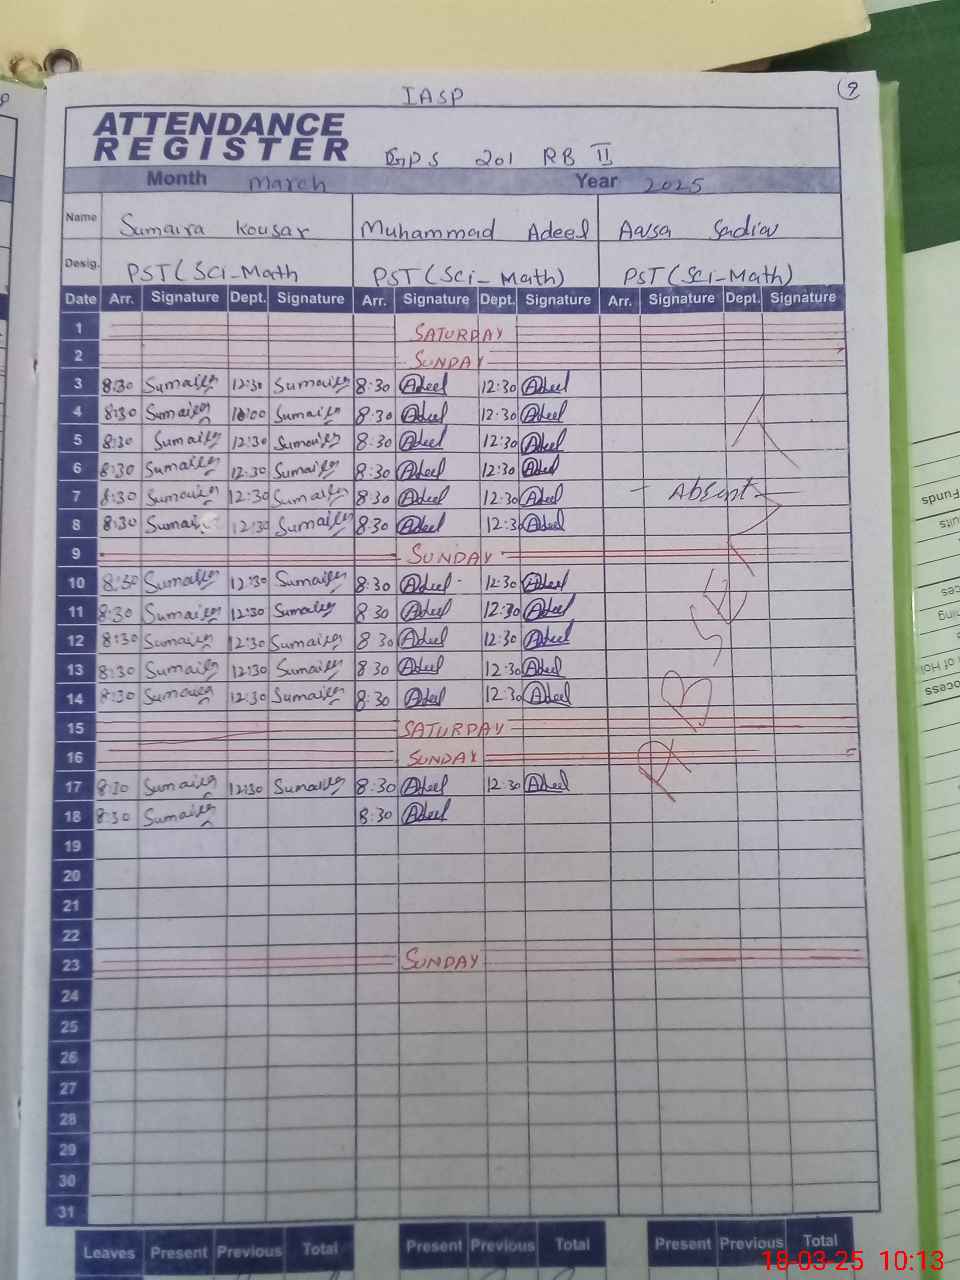 IASP
9
ATTENDANCE
REGISTER
GPS 201 RB II
Month March Year 2025
Name Sumaira Kousar Muhammad Adeel Aasa Sadia
Desig. PST(Sci-Math PST(Sci-Math) PST(Sci-Math)
Date Arr. Signature Dept. Signature Arr. Signature Dept. Signature Arr. Signature Dept. Signature
1 SATURDAY
2 SUNDAY
3 8:30 Sumaira 12:30 Sumaira 8:30 Adeel 12:30 Adeel
4 8:30 Sumaira Sumaira 8:30 Adeel 12:30 Adeel
5 8:30 Sumaira 12:30 Sumaira 8:30 Adeel 12:30 Adeel
6 8:30 Sumaira 12:30 Sumaira 8:30 Adeel 12:30 Adeel
7 8:30 Sumaira 12:30 Sumaira 8:30 Adeel 12:30 Adeel - Absent -
8 8:30 Sumaira 12:30 Sumaira 8:30 Adeel 12:30 Adeel
9 SUNDAY
10 8:30 Sumaira 12:30 Sumaira 8:30 Adeel 12:30 Adeel
11 8:30 Sumaira 12:30 Sumaira 8 30 Adeel 12:30 Adeel
12 8:30 Sumaira 12:30 Sumaira 8 30 Adeel 12:30 Adeel
13 8:30 Sumaira 12:30 Sumaira 8 30 Adeel 12:30 Adeel
14 8:30 Sumaira 12:30 Sumaira 8:30 Adeel 12:30 Adeel
15 SATURDAY
16 SUNDAY
17 8:30 Sumaira 12:30 Sumaira 8:30 Adeel 12:30 Adeel
18 8:30 Sumaira 8:30 Adeel
19
20
21
22
23 SUNDAY
24
25
26
27
28
29
30
31
Leaves Present Previous Total Present Previous Total Present Previous Total
18-03-25 10:13
Funds